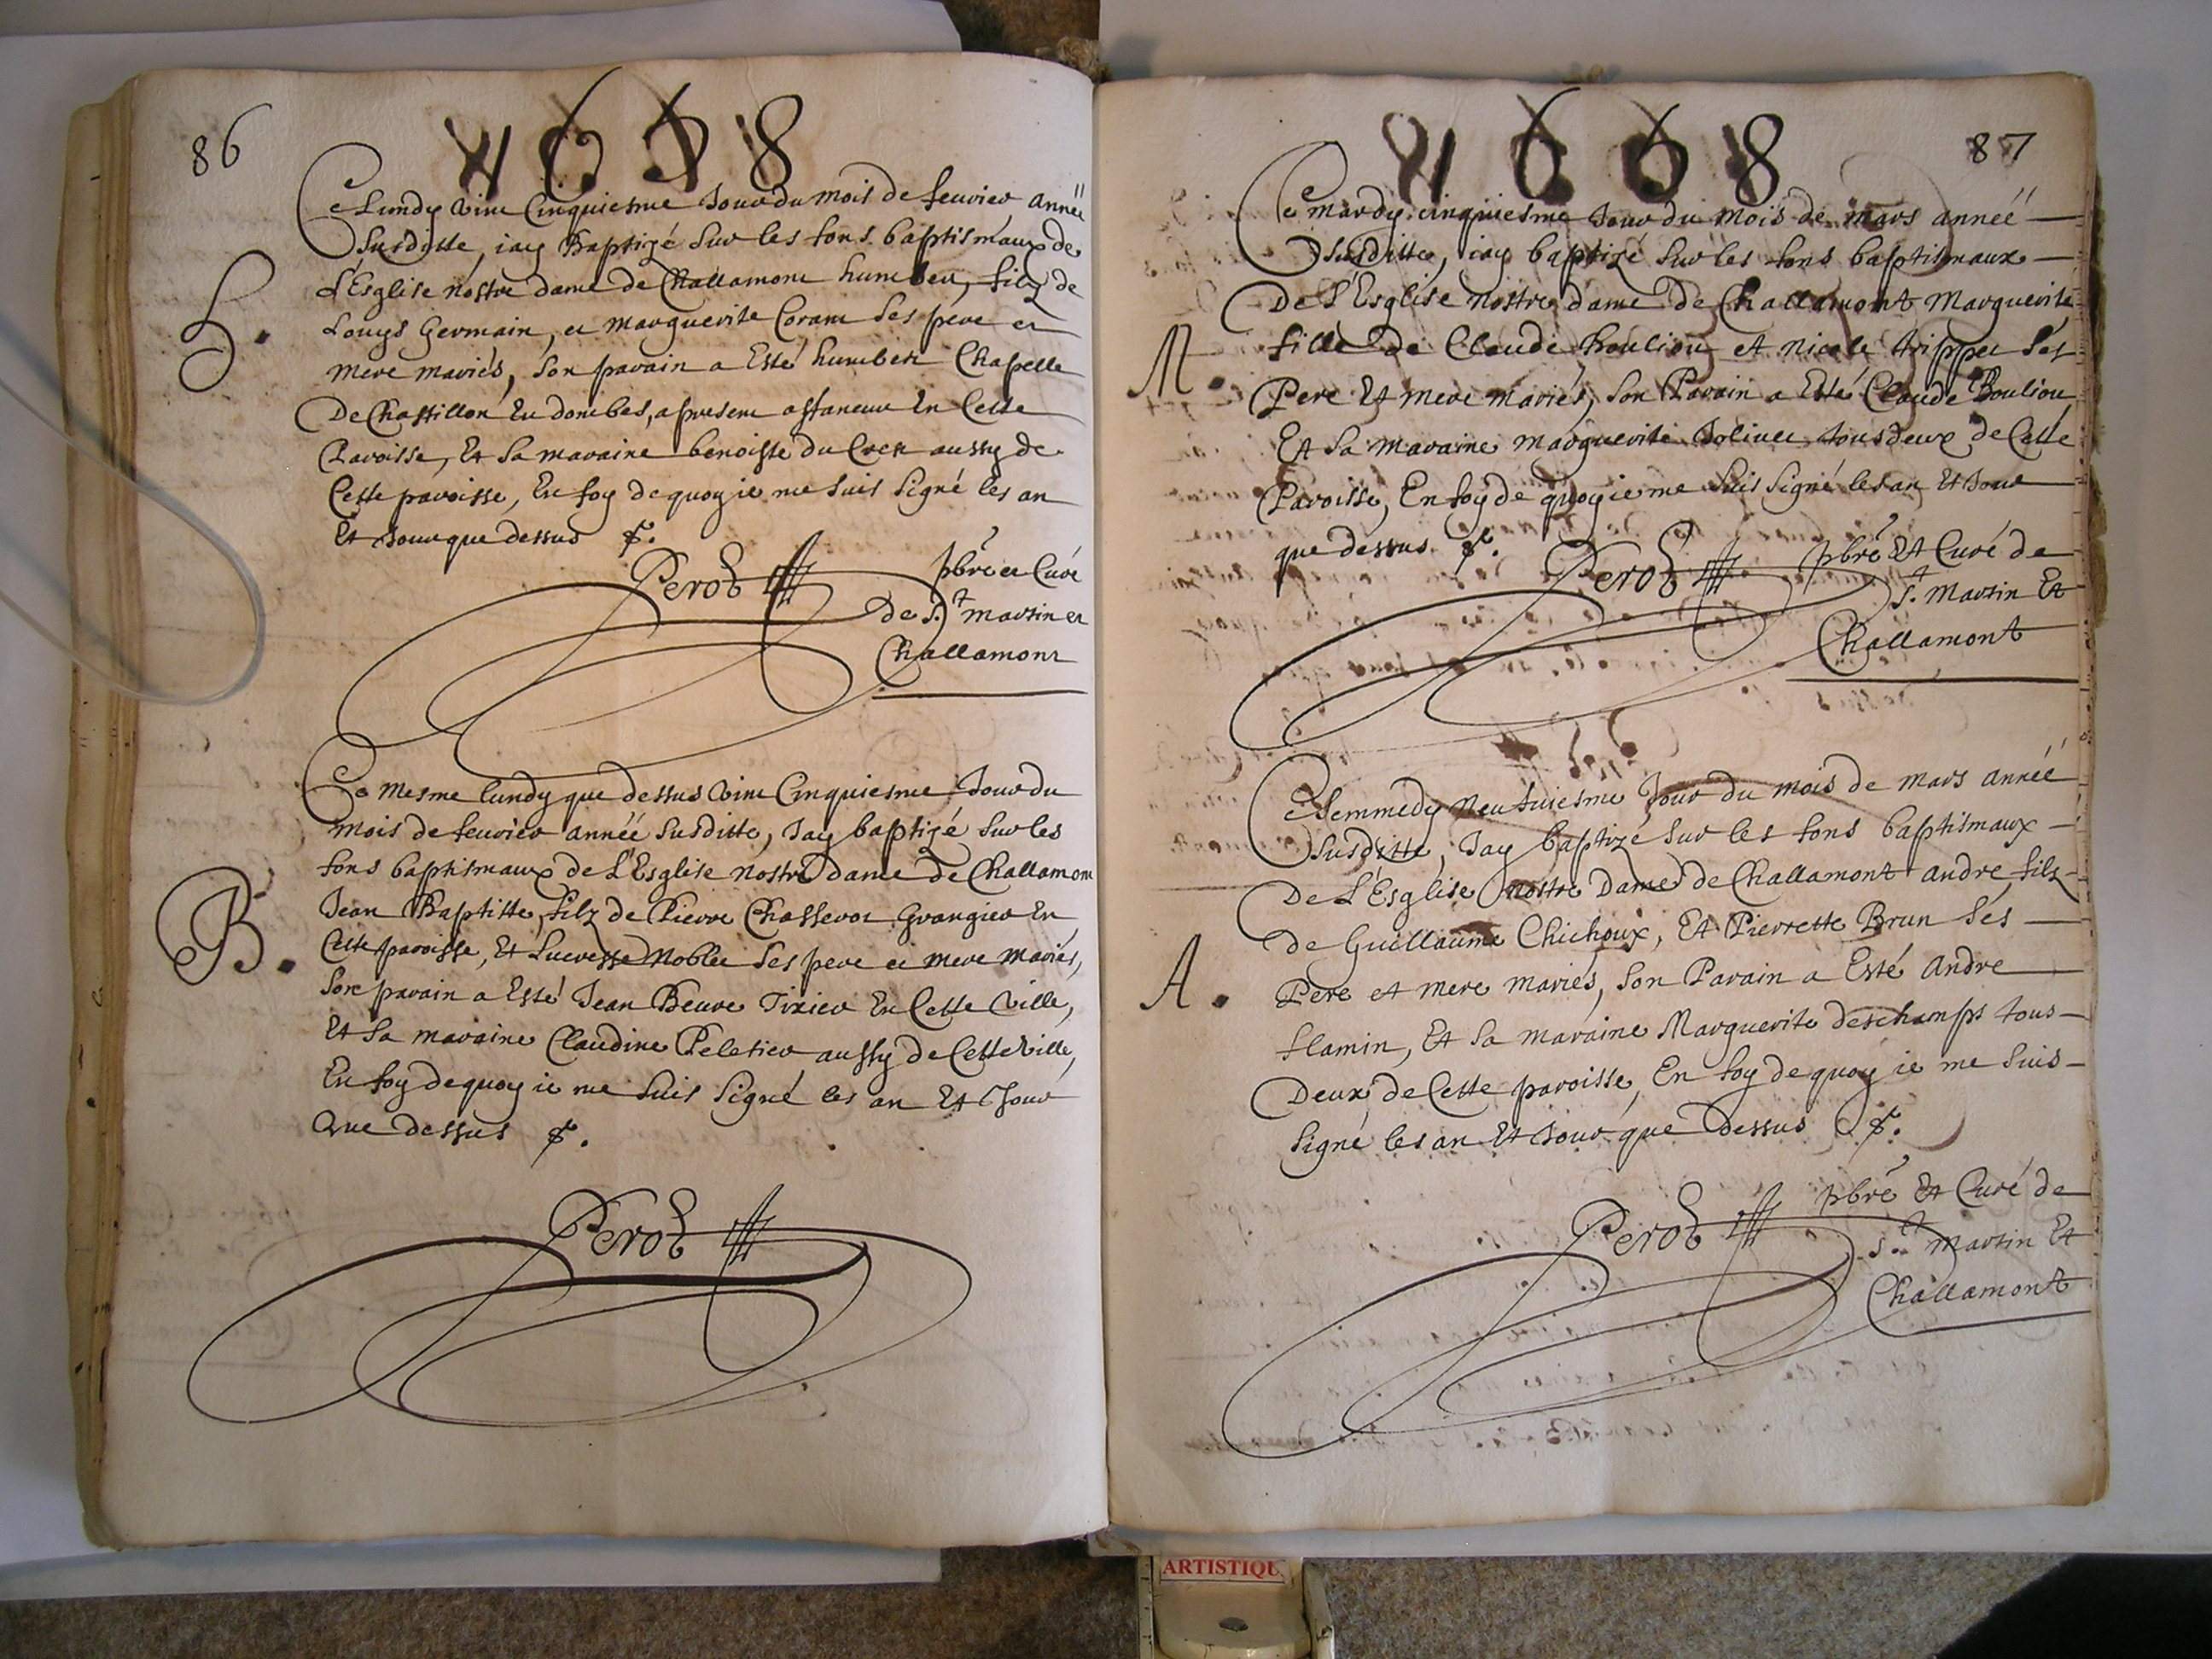 86
1658
Ce Lundy vint Cinquiesme Jour du mois de feuvier année
Susditte, iay Baptizé Sur les fons baptismaux de
L'Esglise nostre dame de Challamont humbert, filz de
Louys Germain, et marguerite Coram Ses pere et
mere mariés, Son parain a Esté humbert Chapelle
De Chastillon En dombes, a present affaneur En Cette
Paroisse, Et Sa maraine benoiste du Cret aussy de
Cette paroisse, En foy de quoy ie me Suis Signé les an
Et Jour que dessus
H.
Perod
pbre et Curé
de St martin et
Challamont
Ce mesme lundy que dessus vint Cinquiesme Jour du
mois de feuvier année Susditte, Jay baptizé Sur les
fons baptismaux de L'Esglise nostre dame de Challamont
Jean Baptitte, filz de Pierre Chasserot Grangier En
Cette paroisse, Et Lucresse Noblet Ses pere et mere mariés,
Son parain a Esté Jean Beure Tixier En Cette Ville,
Et Sa maraine Claudine Peletier aussy de Cette Ville,
En foy de quoy ie me Suis Signé les an Et Jour
Que dessus
B.
Perod
1658
87
Ce mardy cinquiesme Jour du mois de mars année
Susditte, iay baptizé Sur les fons baptismaux
De L'Esglise nostre dame De Challamont Marguerite
fille de Claude Bouliou et nicole trippet Ses
Pere Et mere mariés, Son Parain a Esté Claude Bouliou
Et Sa maraine marguerite Joliuet tous deux de Cette
Paroisse, En foy de quoy ie me Suis Signé les an Et Jour
que dessus
M.
Perod
pbre Et Curé de
St. Martin Et
Challamont
Ce Semmedy neufuiesme Jour du mois de mars année
Susditte, Jay baptizé Sur les fons baptismaux
De L'Esglise nostre Dame de Challamont andre filz
de Guillaume Chichoux, Et Pierrette Brun Ses
Pere et mere mariés, Son Parain a Esté andre
flamin, Et Sa maraine Marguerite deschamps tous
Deux de Cette paroisse, En foy de quoy ie me Suis
Signé les an Et Jour que Dessus
A.
Perod
pbre Et Curé de
St. martin Et
Challamont
ARTISTIQU